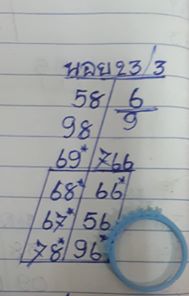 พลอย 23/3
58 6
98 9
69* 766
68* 66*
67* 56
78* 96*